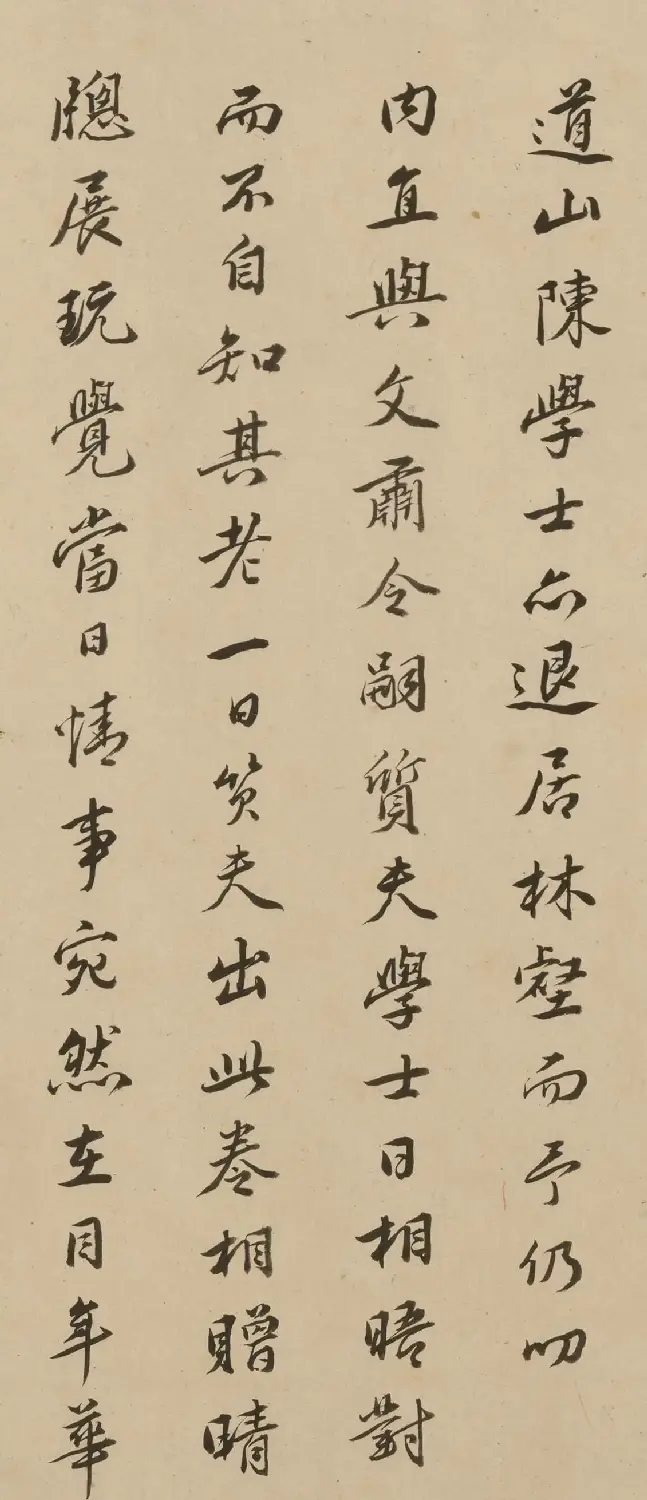 道山陳學士亦退居林壑而予仍叨
內直與文肅令嗣質夫學士日相晤對
而不自知其老一日質夫出此卷相贈晴
牕展玩覺當日情事宛然在目年華